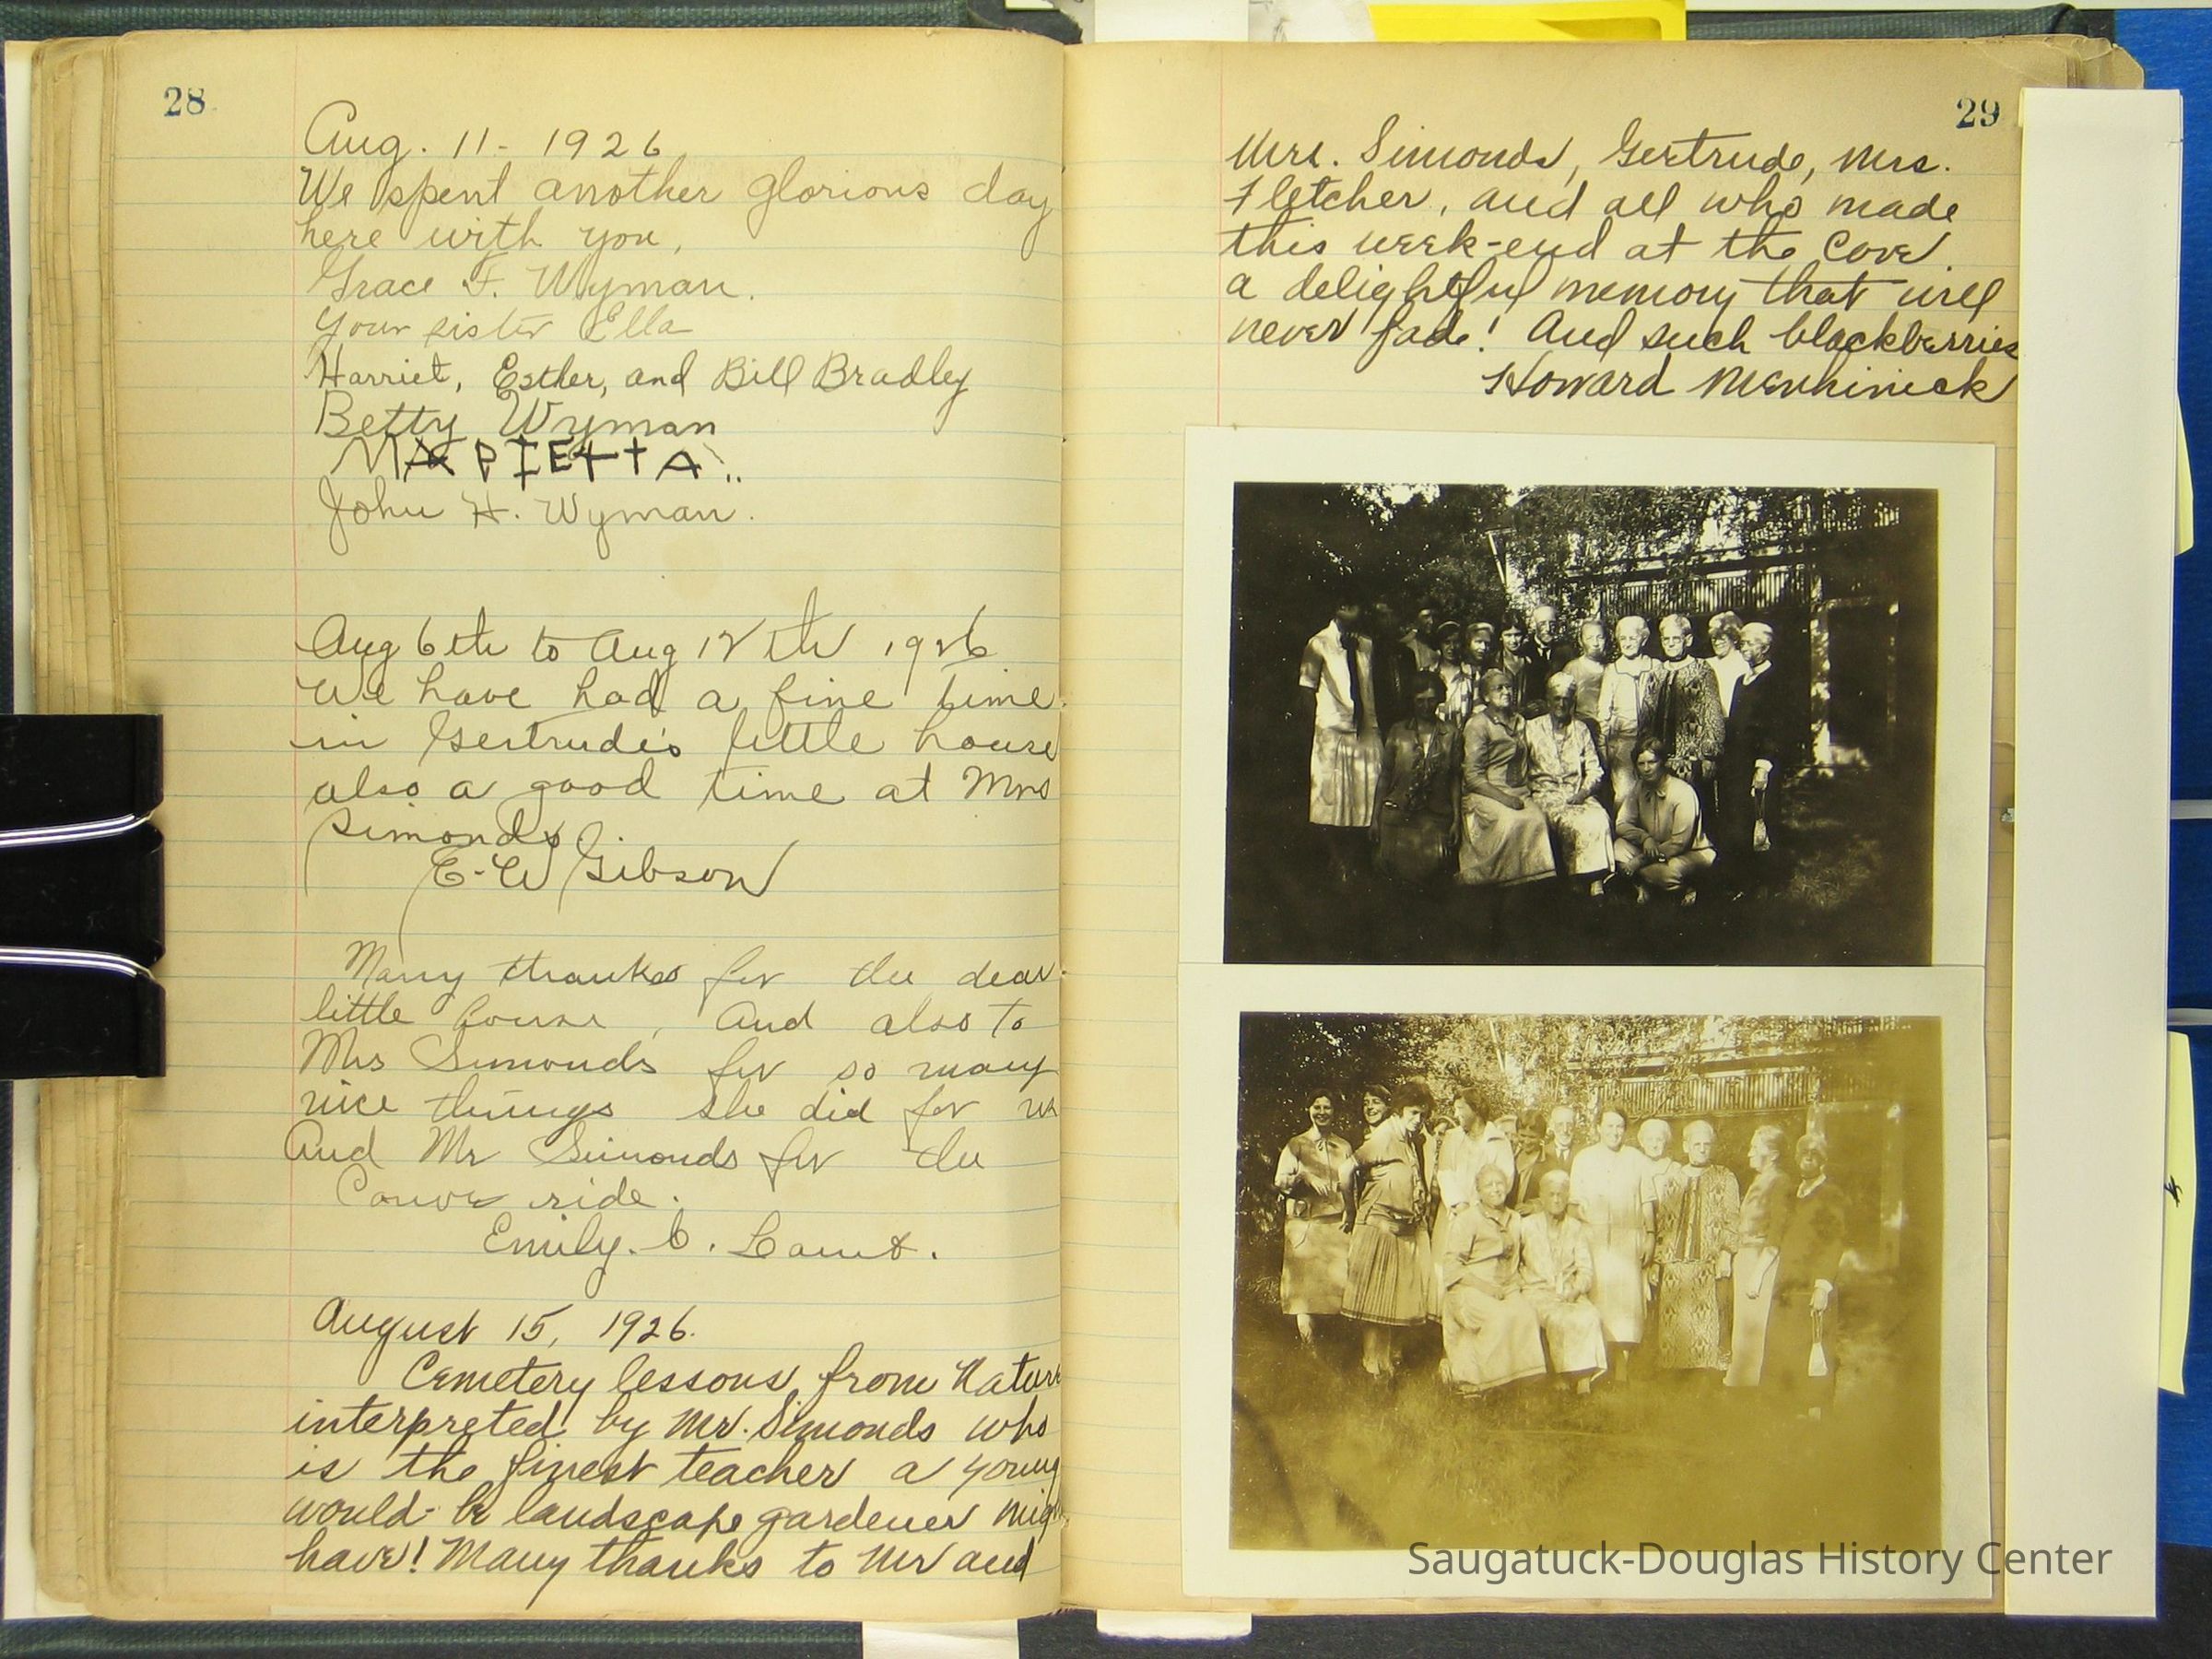 28
Aug. 11 - 1926
We spent another glorious day
here with you,
Grace F. Wyman.
Your sister Ella
Harriet, Esther, and Bill Bradley
Betty Wyman
MARIETTA..
John H. Wyman.
Aug 6th to Aug 12th 1926
We have had a fine time
in Gertrude's little house
also a good time at Mrs
Simonds
E. W Gibson
Many thanks for the dear
little house, And also to
Mrs Simonds for so many
nice things she did for us
And Mr Simonds for the
Canoe ride.
Emily. C.
August 15, 1926.
Cemetery lessons from Nature
interpreted by Mr. Simonds who
is the finest teacher a young
would-be landscape gardener might
have! Many thanks to Mr and
29
Mrs. Simonds, Gertrude, Mrs.
Fletcher, and all who made
this week-end at the Cove
a delightful memory that will
never fade! And such blackberries
Howard
Saugatuck-Douglas History Center